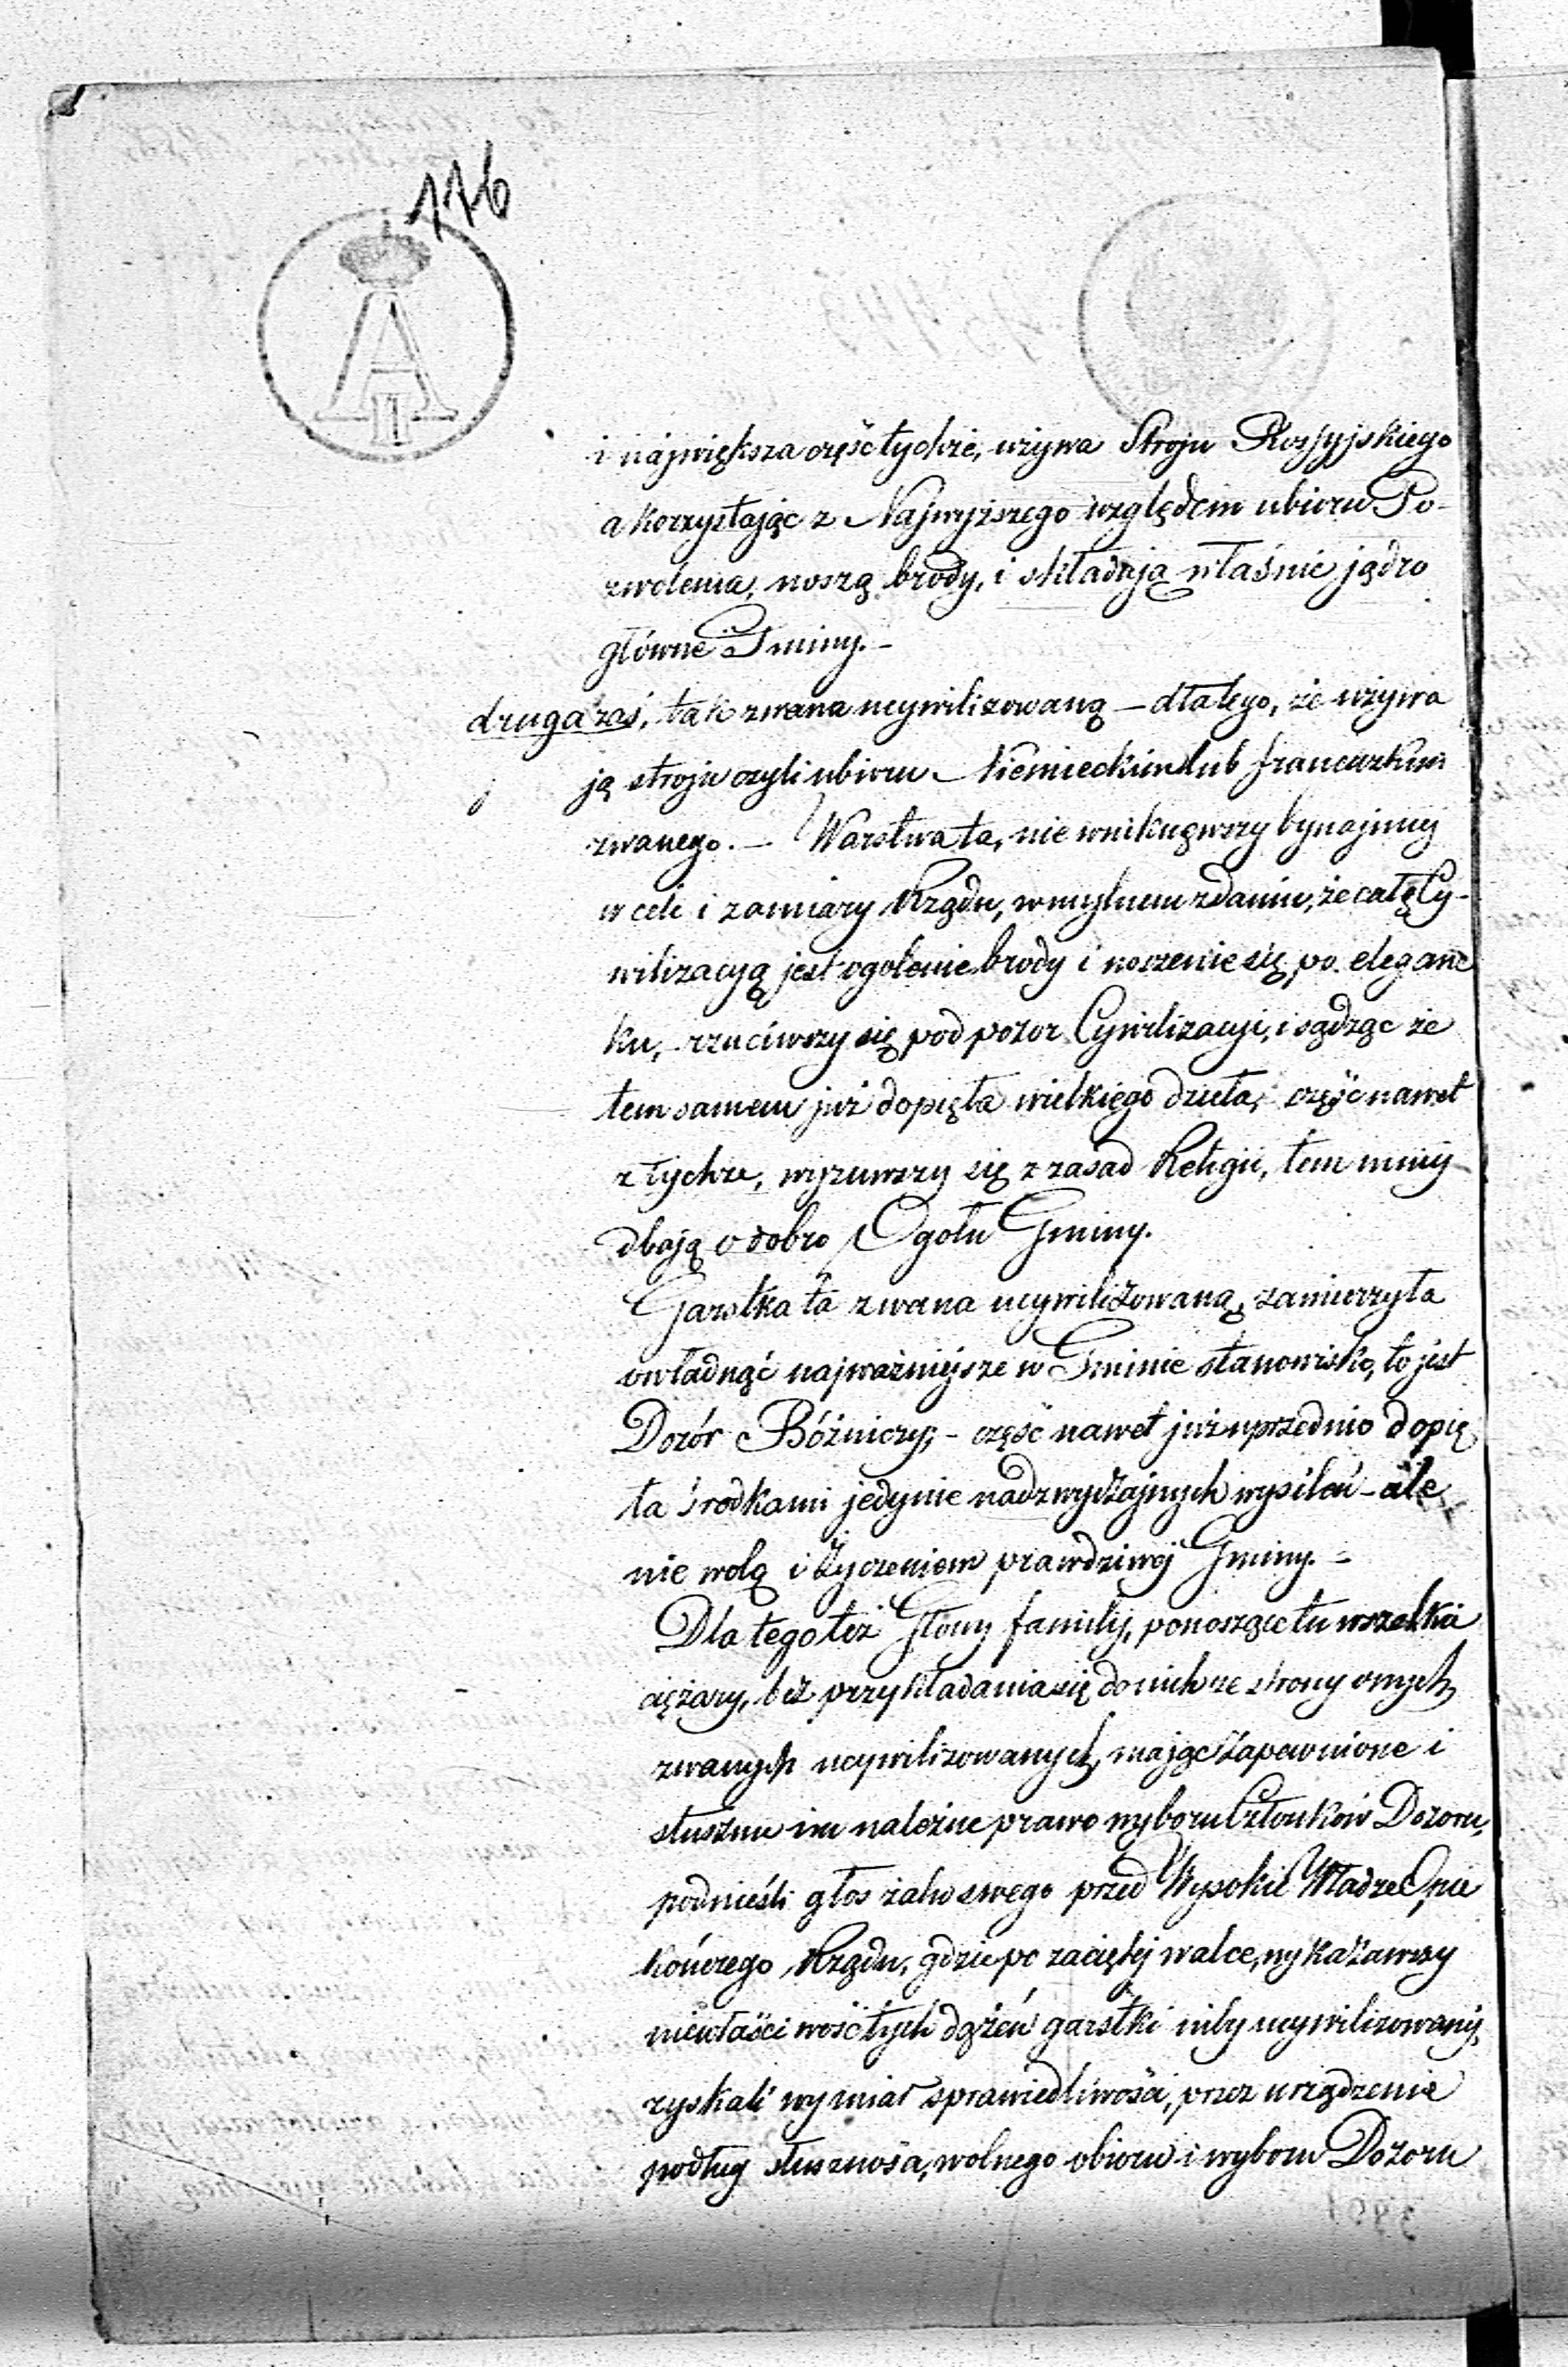 176
A
II
i największa część tychże, używa Stroju Rossyjskiego
a korzystając z Najwyższego względem ubioru Po-
zwolenia, noszą brody, i składają właśnie jądro
główne Gminy. -
druga zaś, tak zwana ucywilizowaną - dlatego, że używa
ją stroju czyli ubioru Niemieckim lub francuzkim
zwanego. - Warstwa ta, nie wniknąwszy bynajmniej
w cele i zamiary Rządu, w mylnem zdaniu, że całą Cy-
wilizacyą jest ogolenie brody i noszenie się po eleganc
ku, - rzuciwszy się pod pozor Cywilizacyi, i sądząc że
tem samem już dopięła wielkiego dzieła, część nawet
z tychże, wyzuwszy się z zasad Religii, tem mniej
dbają o dobro Ogołu Gminy.
Garstka ta zwana ucywilizowaną, zamierzyła
owładnąć najważniejsze w Gminie stanowisko, to jest
Dozór Bóżniczy; - część nawet już uprzednio dopię
ła środkami jedynie nadzwyczajnych wysileń - ale
nie wolą i Życzeniem prawdziwej Gminy. -
Dla tego też Głowy familij, ponoszące tu wszelkie
ciężary, bez przykładania się do nich ze strony onych
zwanych ucywilizowanych, mając zapewnione i
słusznie im należne prawo wyboru Członków Dozoru,
podnieśli głos żalu swego przed Wysokie Władze Opie
kończego Rządu, gdzie po zaciętej walce, wykazawszy
niewłaściwość tych dążeń garstki niby ucywilizowanej,
zyskali wymiar sprawiedliwości, przez urządzenie
podług słuszności, wolnego obioru i wyboru Dozoru